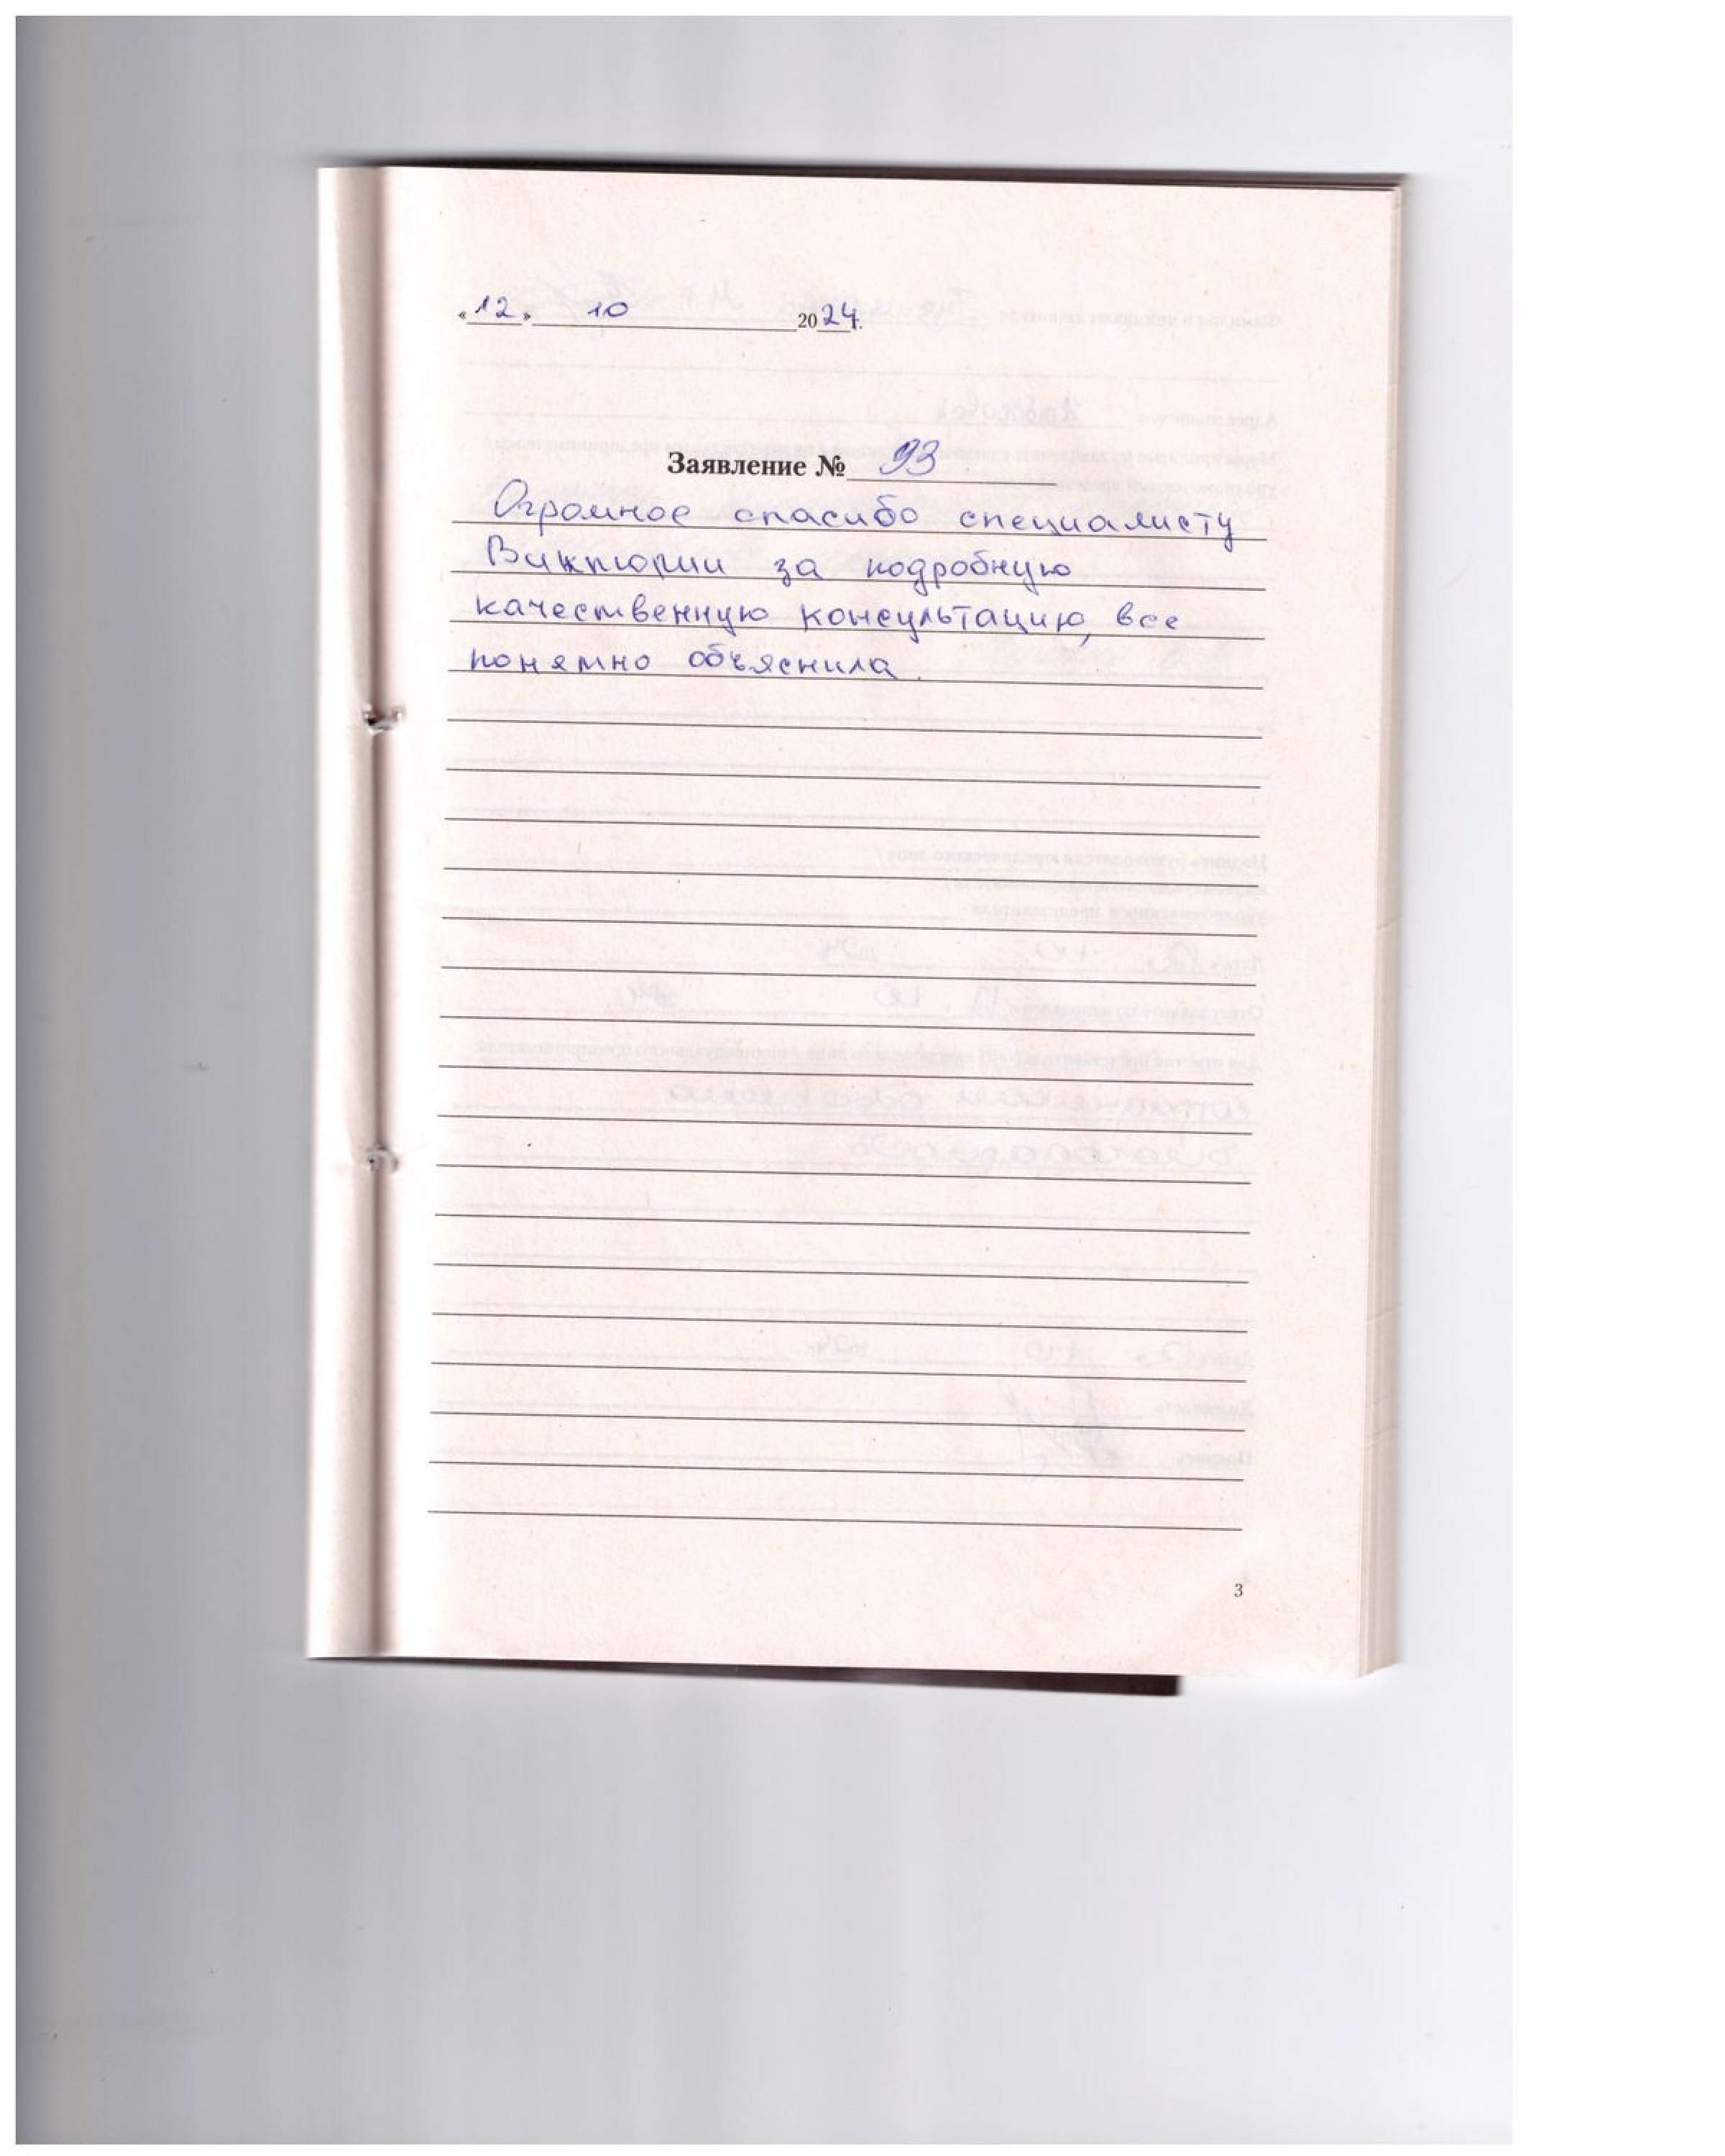 «12» 10 2024г.
Заявление № 93
Огромное спасибо специалисту
Виктории за подробную
качественную консультацию, все
понятно объяснила.
3